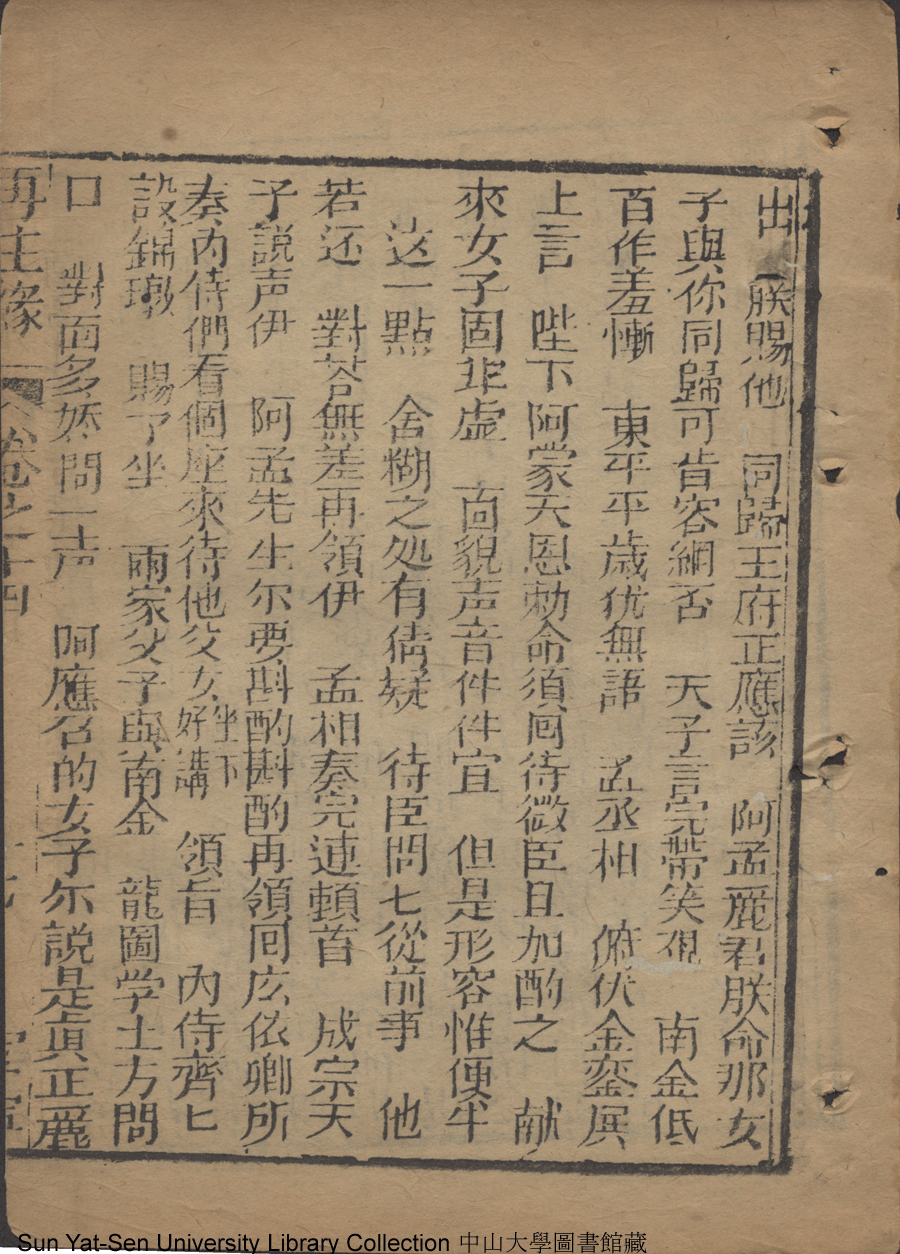 出　朕賜他　同歸王府正應該　阿孟麗君朕命那女
子與你同歸可肯容綱否　天子言完帶笑視　南金低
百作羞慚　東平平歲犹無語　孟丞相　俯伏金鑾展
上言　陛下阿蒙天恩勅命須囘待微臣且加酌之　献
來女子固非虚　面貌声音件件宜　但是形容惟便半
这一點　舍糊之処有猜疑　待臣問七從前事　他
若还　對荅無差再領伊　孟相奏完連頓首　成宗天
子説声伊　阿孟先生尔要斟酌斟酌再領囘庅依卿所
奏内侍們看個座來待他父女坐下好講　領旨　內侍齊匕
設錦墩　賜了坐　兩家父子與南金　龍圖学士方問
口　對面多嬌問一声　阿應召的女子尓説是眞正麗
再生緣　卷之十四
Sun Yat-Sen University Library Collection 中山大學圖書館藏